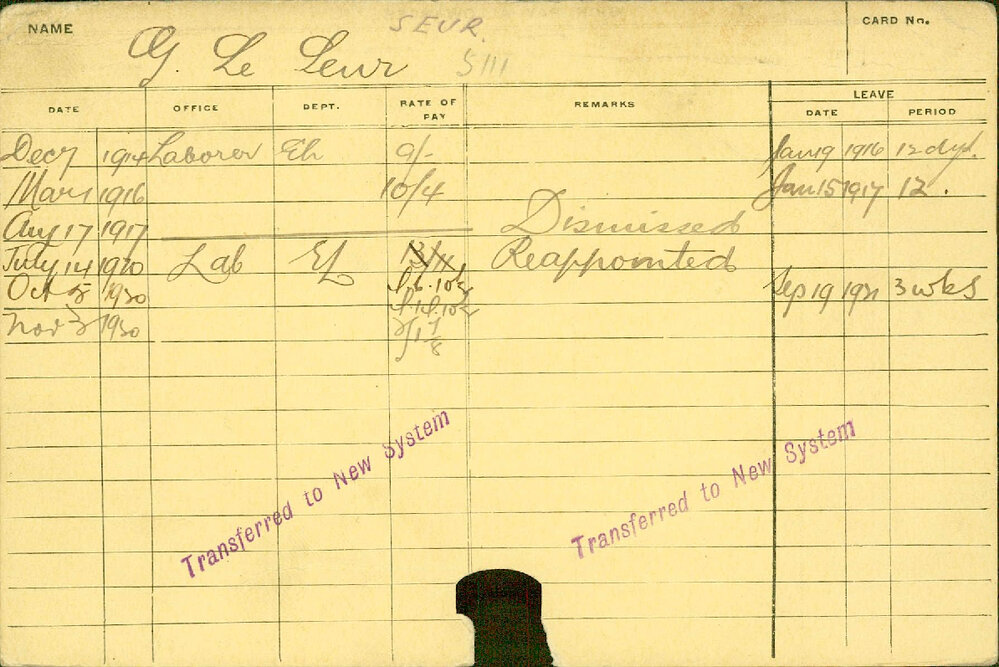 NAME
SEUR.
CARD No.
G. Le Seur
5111
LEAVE
DATE OFFICE DEPT. RATE OF PAY REMARKS DATE PERIOD
Dec 7 1914 Laborer El 9/- Jan 19 1916 12 dys.
Mar 1 1916 10/4 Jan 15 1917 12.
Aug 17 1917 Dismissed
July 14 1920 Lab EL 13/4 Reappointed
Oct 1920 Sep 19 1921 3 wks
Nov 1920
Transferred to New System
Transferred to New System